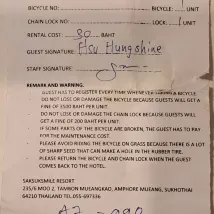 BICYCLE NO: BICYCLE: UNIT
CHAIN LOCK NO: LOCK: 1 UNIT
RENTAL COST: 30 BAHT
GUEST SIGNATURE: Hsu Hungshine
STAFF SIGNATURE
REMARK AND WARNING.
GUEST HAS TO REGISTER EVERY TIME WHENEVER TAKING A BICYCLE.
DO NOT LOSE OR DAMAGE THE BICYCLE BECAUSE GUESTS WILL GET A
FINE OF 3500 BAHT PER UNIT.
DO NOT LOSE OR DAMAGE THE CHAIN LOCK BECAUSE GUESTS WILL
GET A FINE OF 200 BAHT PER UNIT.
IF SOME PARTS OF THE BICYCLE ARE BROKEN, THE GUEST HAS TO PAY
FOR THE MAINTENANCE COST.
PLEASE AVOID RIDING THE BICYCLE ON GRASS BECAUSE THERE IS A LOT
OF SHARP SEED THAT CAN MAKE A HOLE IN THE RUBBER TIRE.
PLEASE RETURN THE BICYCLE AND CHAIN LOCK WHEN THE GUEST
COMES BACK TO THE HOTEL.
SAKSUKSMILE RESORT
235/6 MOO 2, TAMBON MUEANGKAO, AMPHORE MUEANG, SUKHOTHAI
64210 THAILAND TEL.055-697336